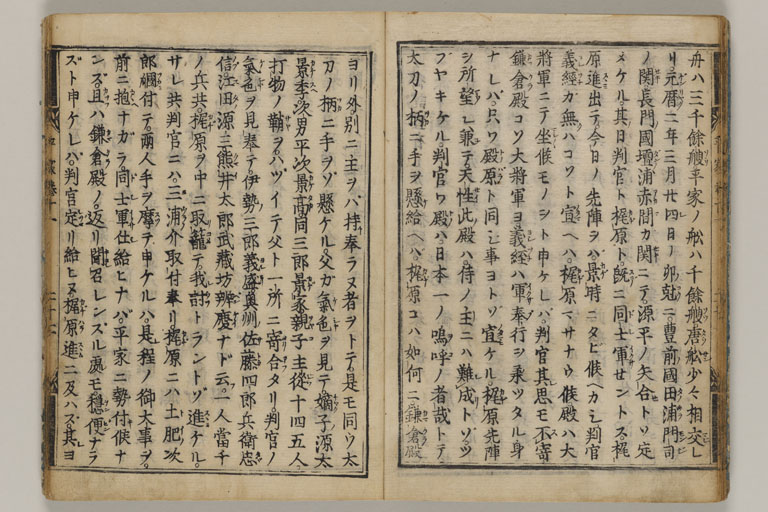 舟ハ三千餘艘平家ノ舩ハ千餘艘唐舩少々相交レ
リ元暦二年三月廿四日ノ卯尅ニ豊前國田浦門司
ノ関長門國壇浦赤間カ関ニテ源平ノ矢合トソ定
メケル其日判官ト梶原ト既ニ同士軍セントス梶
原進出テ今日ノ先陣ヲハ景時ニタヒ候ヘカシ判官
義經カ無ハコソト宣ヘハ梶原マサナウ候殿ハ大
將軍ニテ坐候モノシト申ケレハ判官其思モ不寄
鎌倉殿コソ大將軍ヨ義經ハ軍奉行ヲ乗ツタル身
ナレハ只ワ殿原ト同シ事ヨトソ宣ケル梶原先陣
シ所望シ兼テ天性此殿ハ侍ノ主ニハ難成トソツ
フヤキケル判官ワ殿ハ日本一ノ嗚呼ノ者哉トテ
太刀ノ柄ニ手ヲ懸給ヘハ梶原コハ如何ニ鎌倉殿
ヨリ外別ニ主ヲハ持奉ラヌ者ヲトテ是モ同ウ太
刀ノ柄ニ手ヲソ懸ケル父カ氣色ヲ見テ嫡子源太
景季次男平次景髙同三郎景家親子主従十四五人
打物ノ鞘ヲハツイテ父ト一所ニ寄合タリ判官ノ
氣色ヲ見奉テ伊勢三郎義盛奥州佐藤四郎兵衛忠
信江田源三熊井太郎武藏坊辨慶ナト云一人當千
ノ兵共梶原ヲ中ニ取籠テ我討トラントソ進ケル
サレ共判官ニハ三浦介取付奉リ梶原ニハ土肥次
郎𦁤付テ兩人手ヲ摩テ申ケルハ是程ノ御大事ヲ
前ニ抱ナカラ同士軍仕給ヒナハ平家ニ勢付候ナ
ンス且ハ鎌倉殿ノ返リ聞召レンスル處モ穏便ナラ
スト申ケレハ判官定リ給ヒヌ梶原進ニ及ハス其ヨ